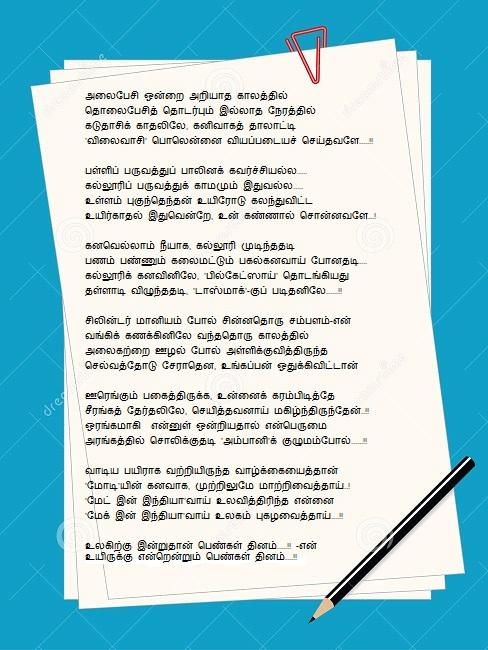 அலைபேசி ஒன்றை அறியாத காலத்தில்
தொலைபேசித் தொடர்பும் இல்லாத நேரத்தில்
கடுதாசிக் காதலிலே, கனிவாகத் தாலாட்டி
'விலைவாசி' பொலென்னை வியப்படையச் செய்தவளே.....!!
பள்ளிப் பருவத்துப் பாலினக் கவர்ச்சியல்ல.....
கல்லூரிப் பருவத்துக் காமமும் இதுவல்ல.....
உள்ளம் புகுந்தெந்தன் உயிரோடு கலந்துவிட்ட
உயிர்காதல் இதுவென்றே, உன் கண்ணால் சொன்னவளே...!
கனவெல்லாம் நீயாக, கல்லூரி முடிந்ததடி
பணம் பண்ணும் கலைமட்டும் பகல்கனவாய் போனதடி....
கல்லூரிக் கனவினிலே, 'பில்கேட்ஸாய்' தொடங்கியது
தள்ளாடி விழுந்ததடி, 'டாஸ்மாக்'-குப் படிதனிலே......!!
சிலிண்டர் மானியம் போல் சின்னதொரு சம்பளம்-என்
வங்கிக் கணக்கினிலே வந்ததொரு காலத்தில்
அலைகற்றை ஊழல் போல் அள்ளிக்குவித்திருந்த
செல்வத்தோடு சேராதென, உங்கப்பன் ஒதுக்கிவிட்டான்
ஊரெங்கும் பகைத்திருக்க, உன்னைக் கரம்பிடித்தே
சீரங்கத் தேர்தலிலே, செயித்தவனாய் மகிழ்ந்திருந்தேன்..!!
ஓரங்கமாகி என்னுள் ஒன்றியதால் என்பெருமை
அரங்கத்தில் சொலிக்குதடி 'அம்பானி'க் குழுமம்போல்......!!
வாடிய பயிராக வற்றியிருந்த வாழ்க்கையைத்தான்
'மோடி'யின் கனவாக, முற்றிலுமே மாற்றிவைத்தாய்..!
'மேட் இன் இந்தியா'வாய் உலவித்திரிந்த என்னை
'மேக் இன் இந்தியா'வாய் உலகம் புகழவைத்தாய்....!!
உலகிற்கு இன்றுதான் பெண்கள் தினம்.....!! -என்
உயிருக்கு என்றென்றும் பெண்கள் தினம்....!!